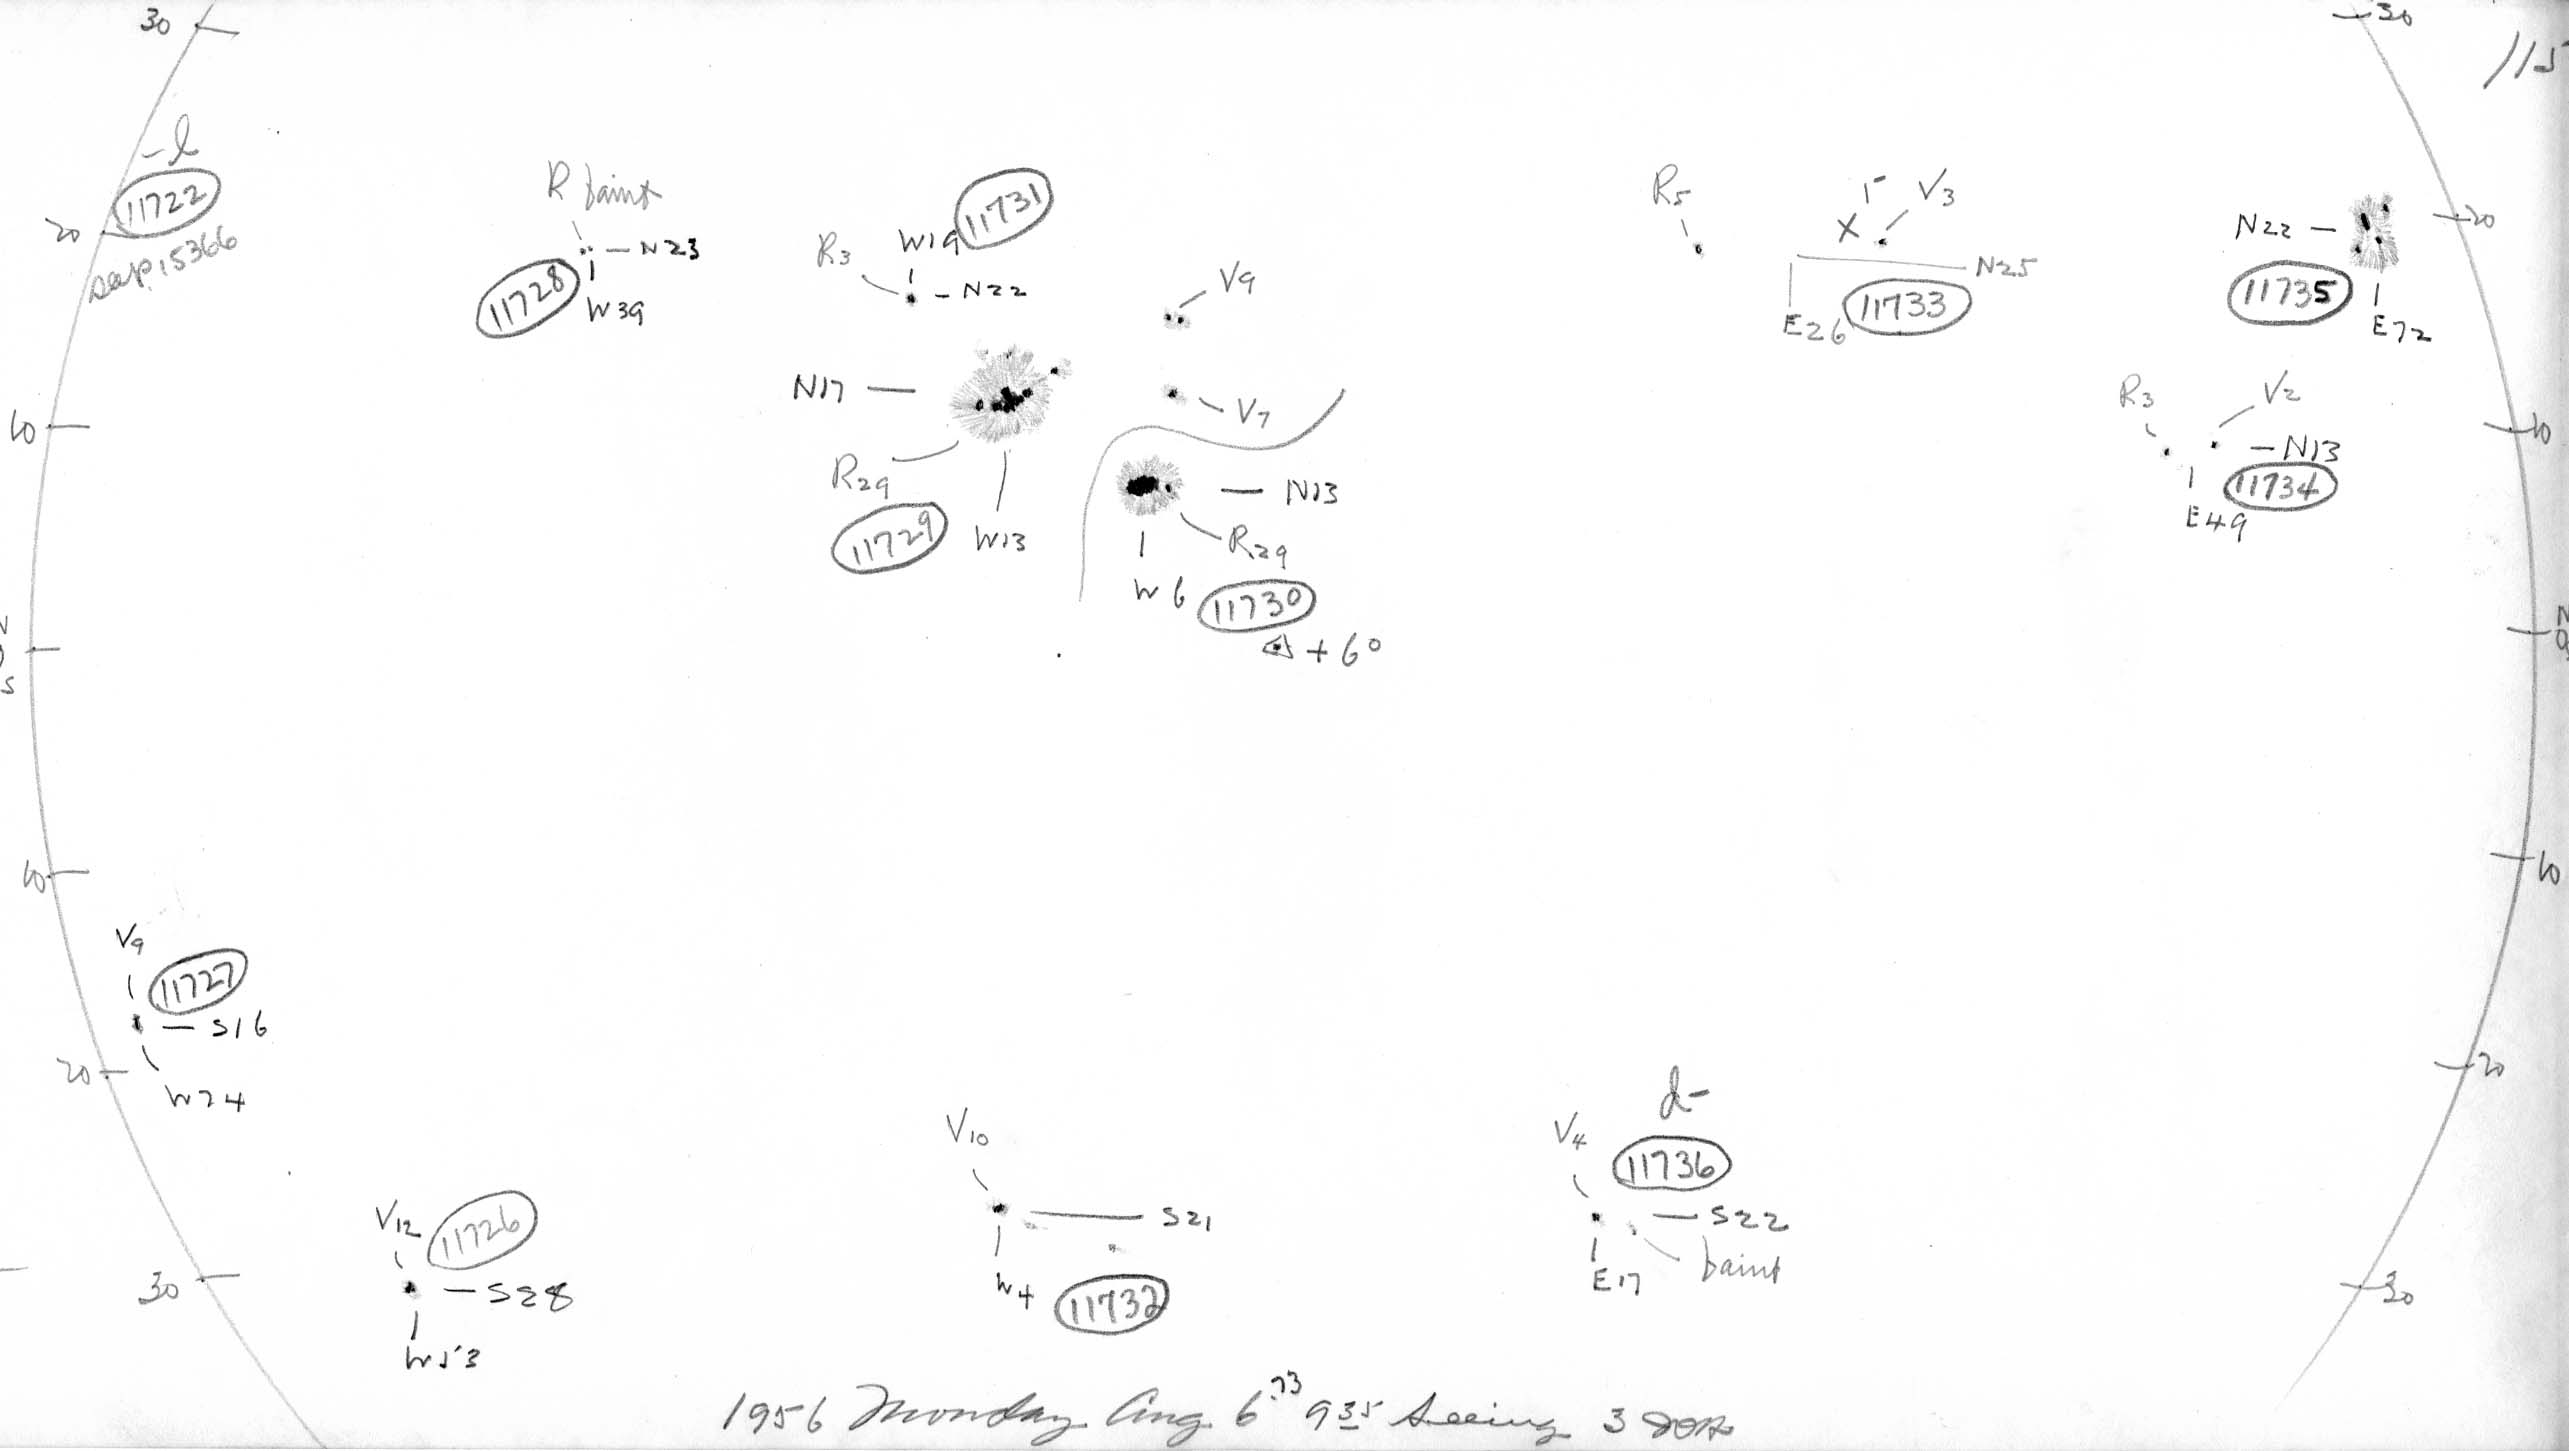 30
30
115
-l
11722
20
see p. 15366
R faint
N23
11728
W39
11731
W19
R3
N22
V9
N17
V7
R29
11729
W13
N13
R29
W6
11730
+ 6°
R5
r
V3
X
N25
E26
11733
N22
20
11735
E72
R3
V2
N13
11734
E49
10
10
N
0
S
N
0
S
10
10
V9
11727
S16
20
W74
20
V12
11726
S28
30
W53
V10
S21
W4
11732
d-
V4
11736
S22
faint
E17
30
1956 Monday Aug. 6.73 935 Seeing 3